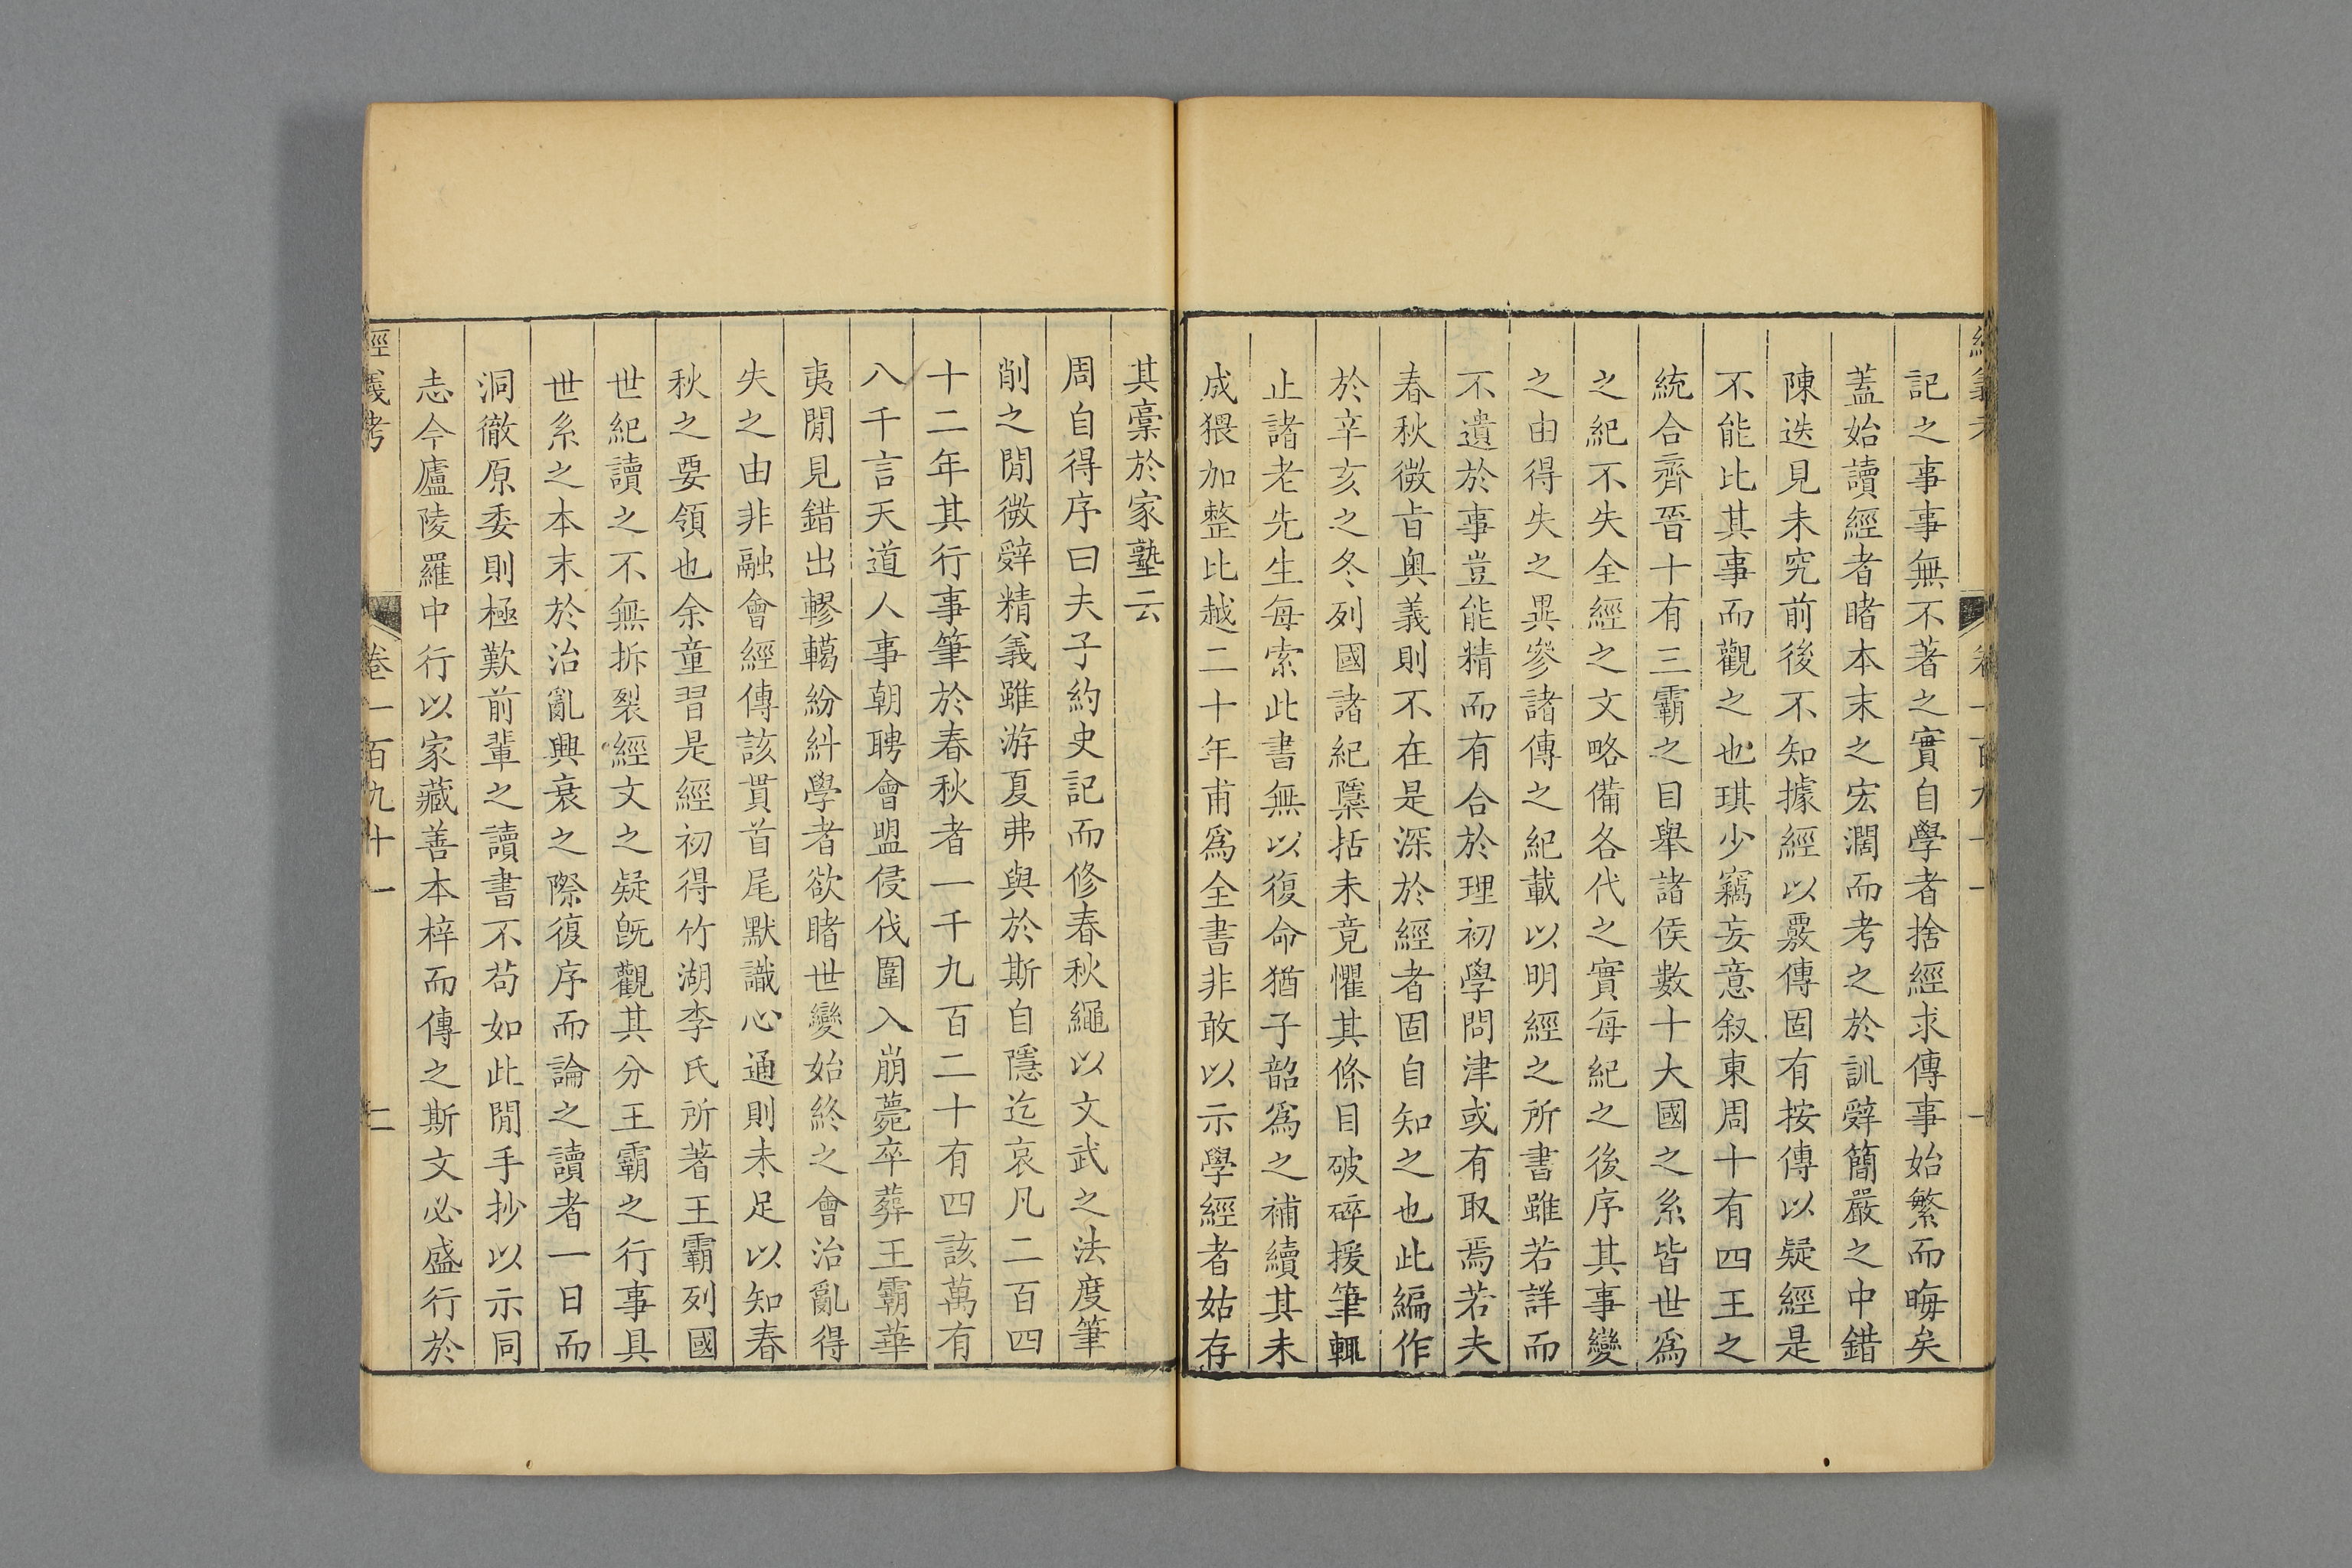 記之事事無不著之實自學者捨經求傳事始繁而晦矣
蓋始讀經者睹本末之宏濶而考之於訓辭簡嚴之中錯
陳迭見未究前後不知據經以覈傳固有按傳以疑經是
不能比其事而觀之也琪少竊妄意叙東周十有四王之
統合齊晉十有三霸之目舉諸侯數十大國之系皆世爲
之紀不失全經之文略備各代之實每紀之後序其事變
之由得失之異參諸傳之紀載以明經之所書雖若詳而
不遺於事豈能精而有合於理初學問津或有取焉若夫
春秋微旨奥義則不在是深於經者固自知之也此編作
於辛亥之冬列國諸紀櫽括未竟懼其條目破碎援筆輒
止諸老先生每索此書無以復命猶子韶爲之補續其未
成猥加整比越二十年甫爲全書非敢以示學經者姑存
其稾於家塾云
周自得序曰夫子約史記而修春秋繩以文武之法度筆
削之閒微辭精義雖游夏弗與於斯自隱迄哀凡二百四
十二年其行事筆於春秋者一千九百二十有四該萬有
八千言天道人事朝聘會盟侵伐圍入崩薨卒葬王霸華
夷閒見錯出轇轕紛糾學者欲睹世變始終之會治亂得
失之由非融會經傳該貫首尾默識心通則未足以知春
秋之要領也余童習是經初得竹湖李氏所著王霸列國
世紀讀之不無拆裂經文之疑旣觀其分王霸之行事具
世系之本末於治亂興衰之際復序而論之讀者一日而
洞徹原委則極歎前輩之讀書不苟如此閒手抄以示同
志今廬陵羅中行以家藏善本梓而傳之斯文必盛行於
經義考 卷一百九十一 二